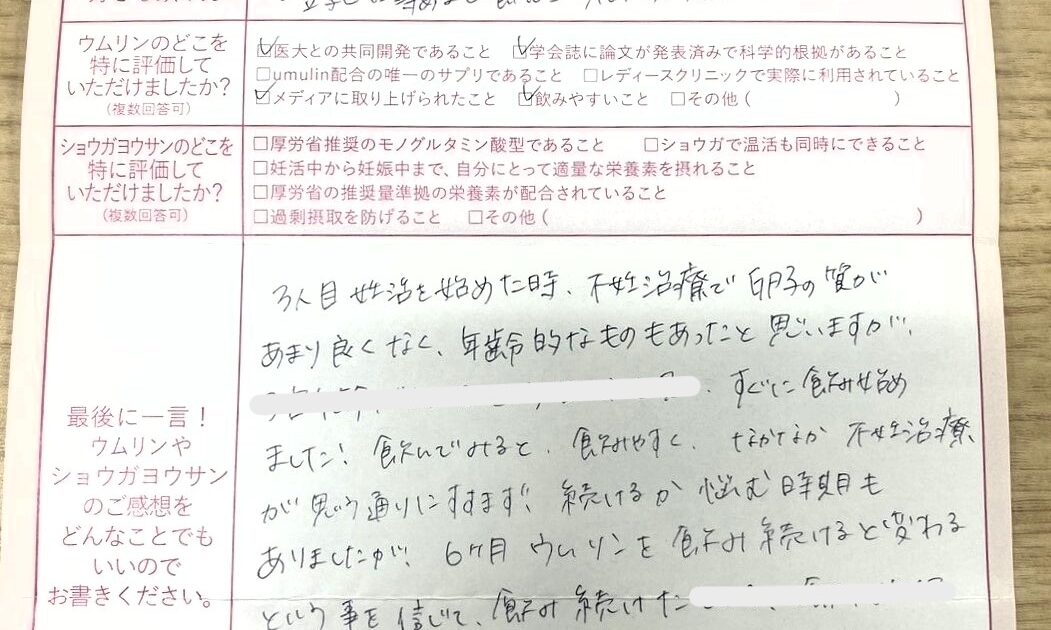 ウムリンのどこを
特に評価して
いただけましたか?
(複数回答可)
☑医大との共同開発であること ☑学会誌に論文が発表済みで科学的根拠があること
□umulin配合の唯一のサプリであること □レディースクリニックで実際に利用されていること
☑メディアに取り上げられたこと ☑飲みやすいこと □その他( )
ショウガヨウサンのどこを
特に評価して
いただけましたか?
(複数回答可)
□厚労省推奨のモノグルタミン酸型であること □ショウガで温活も同時にできること
□妊活中から妊娠中まで、自分にとって適量な栄養素を摂れること
□厚労省の推奨量準拠の栄養素が配合されていること
□過剰摂取を防げること □その他( )
最後に一言!
ウムリンや
ショウガヨウサン
のご感想を
どんなことでも
いいので
お書きください。
3人目妊活を始めた時、不妊治療で卵子の質が
あまり良くなく、年齢的なものもあったと思いますが、
、すぐに飲み始め
ました!飲んでみると、飲みやすく、なかなか不妊治療
が思う通りにすすまず、続けるか悩む時期も
ありましたが、6ヶ月ウムリンを飲み続けると変わる
という事を信じて、飲み続けた